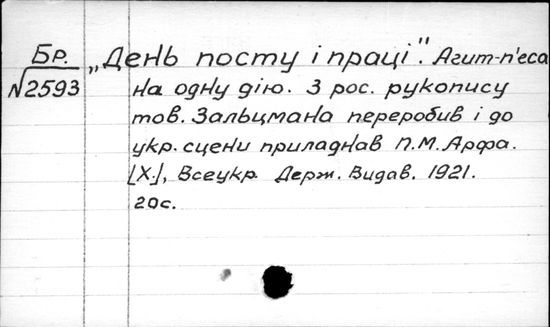 Бр. „День посту і праці". Агит-п'еса
№2593 на одну дію. З рос. рукопису
тов. Зальцмана переробив і до
укр. сцени приладнав П.М. Арфа.
[Х.], Всеукр. Держ. Видав. 1921.
20с.